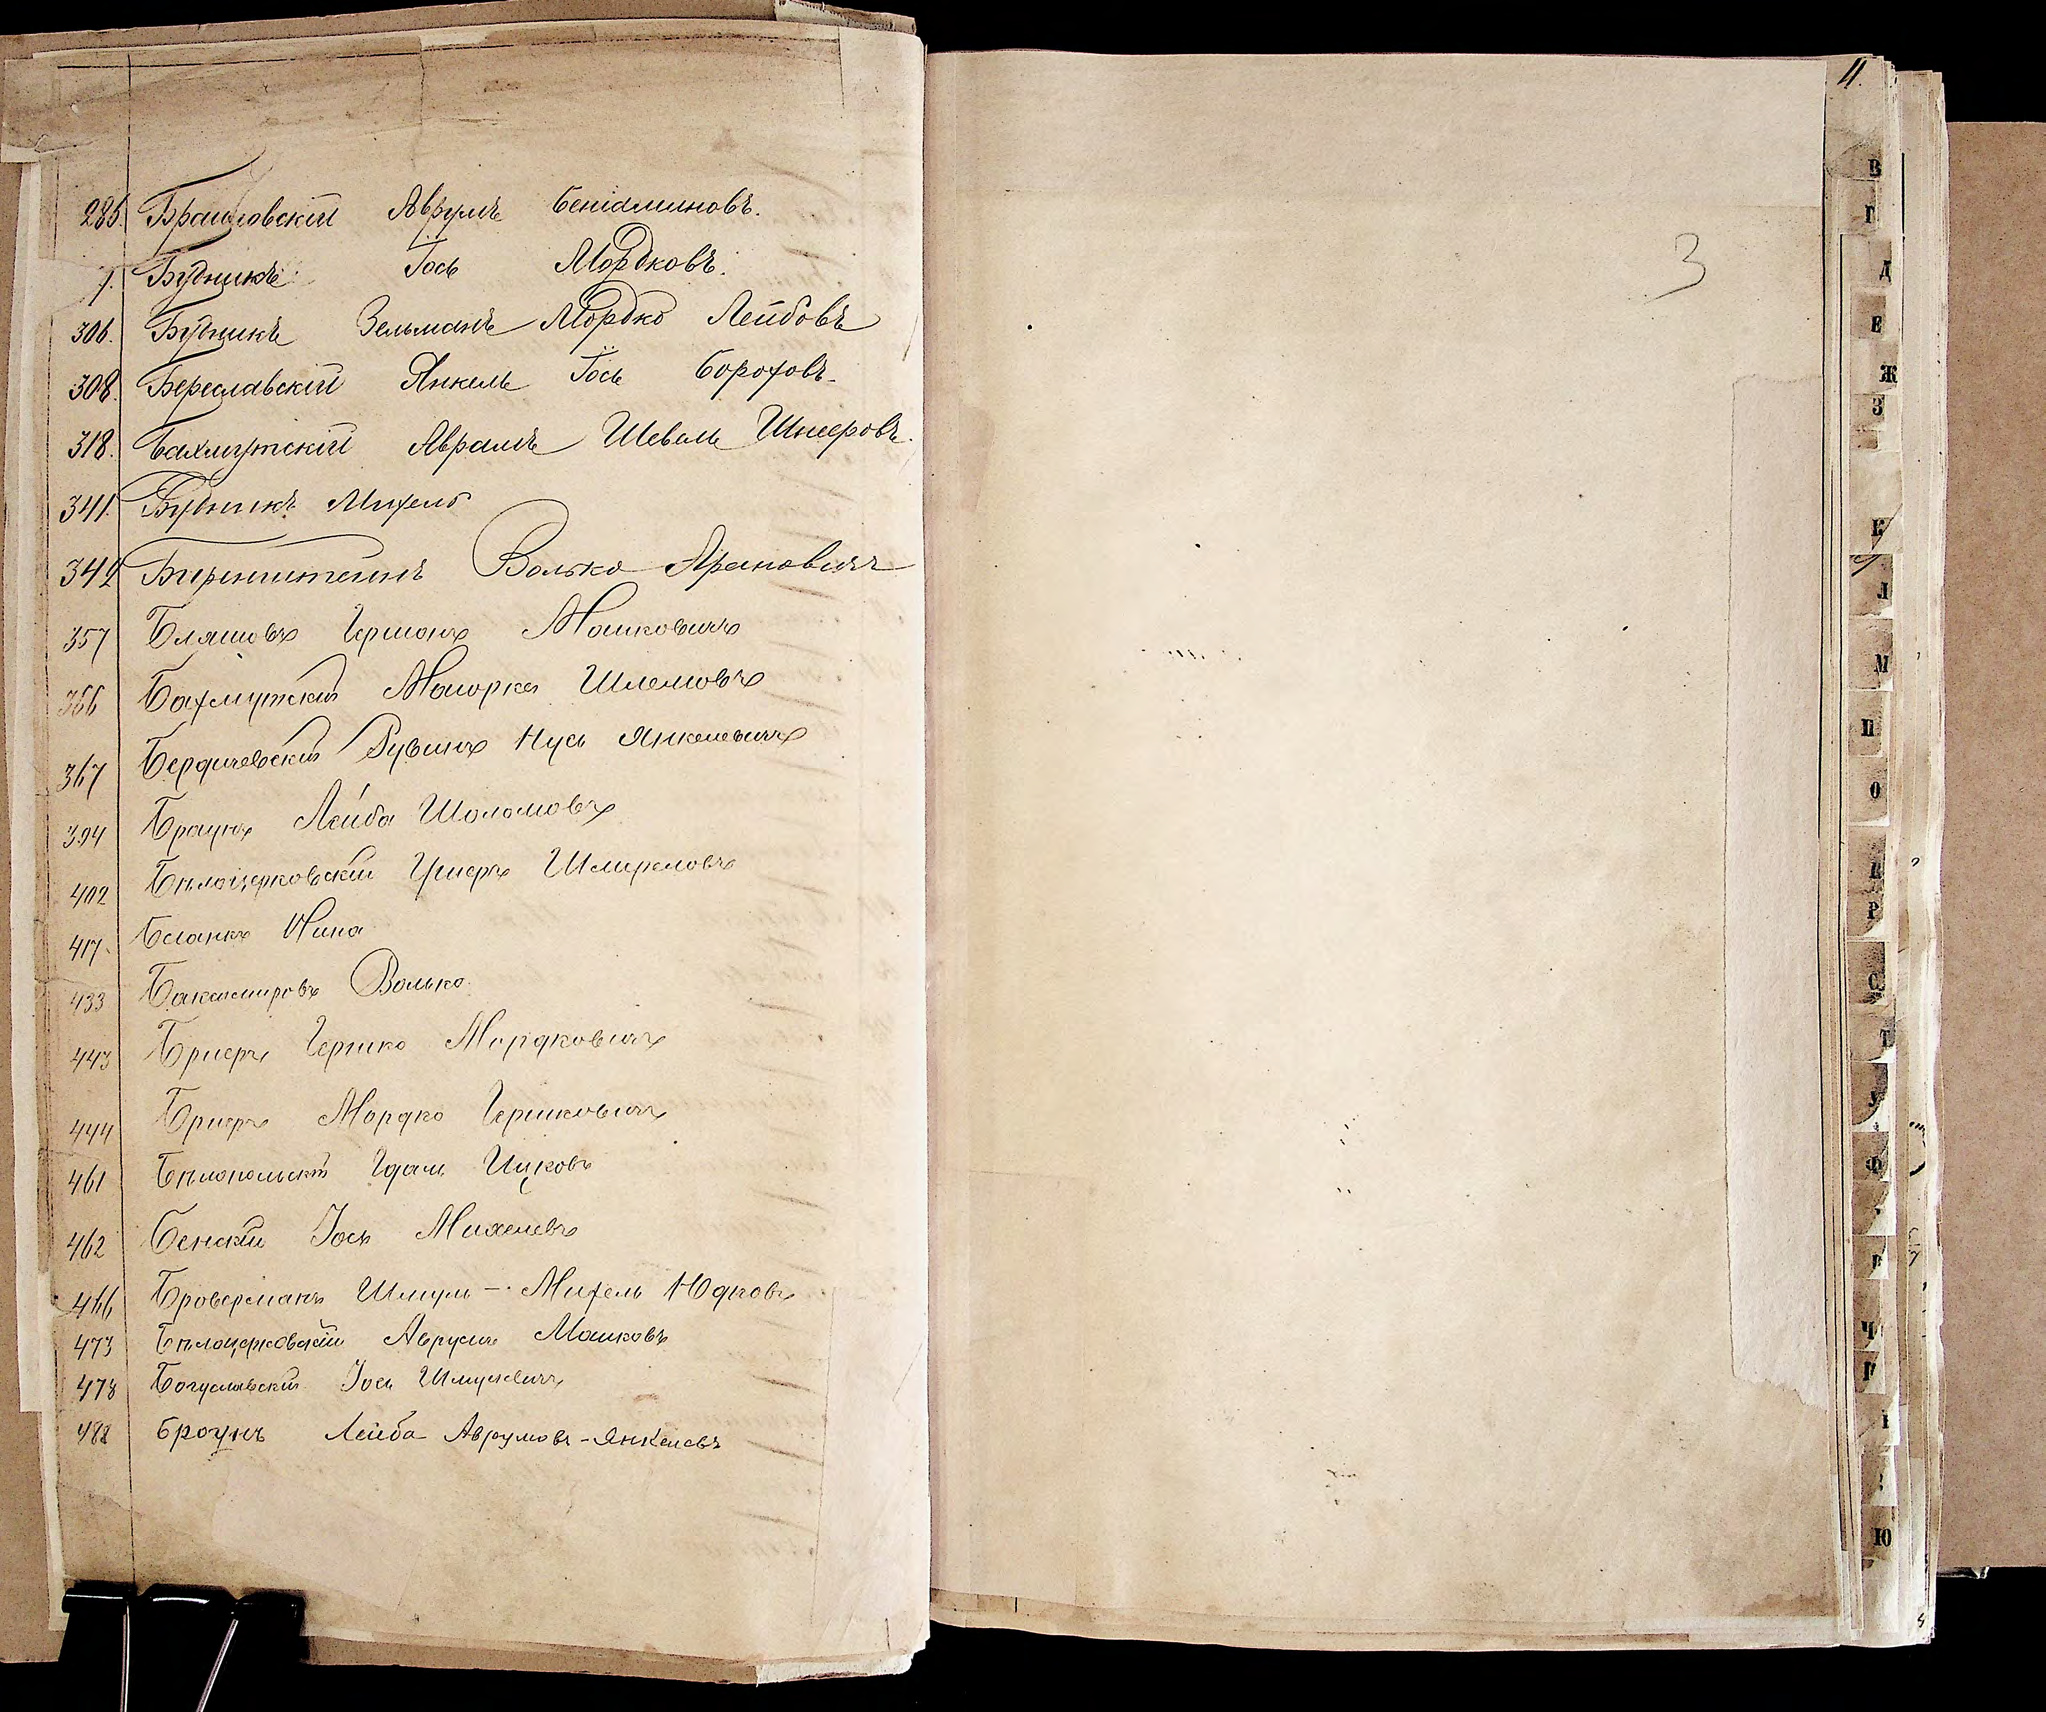 285. Браиловскій Аврумъ Беніаминовъ.
1. Будникъ Іось Мордковъ.
306. Будникъ Зельманъ Мордко Лейбовъ
308. Береславскій Янкель Іось Бороховъ.
318. Бахмутскій Аврамъ Шевель Шнееровъ.
341. Будникъ Михель
342 Бирнштейнъ Волько Ароновичъ
357 Бляшовъ Гершонъ Мошковичъ
366 Бахмутскій Мошорка Шлемовъ
367 Бердичевскій Рувинъ Нусь Янкелевичъ
394 Браунъ Лейба Шоломовъ
402 Бѣлоцерковскій Ушеръ Шмереловъ
417. Бланкъ
433 Волько
443 Бриеръ Гершко Мордковичъ
444 Бриеръ Мордко Гершковичъ
461 Бѣлопольскій Гдаль Ицковъ
462 Бенскій Іось Михелевъ
466 Броверманъ Шмуль - Михель Юдковъ
473 Бѣлоцерковскій Аврумъ Мошковъ
478 Богуславскій Іось Шмулевичъ
488 Броунъ Лейба Аврумовъ - Янкелевъ
3
11.
В
Г
Д
Е
Ж
З
К
Л
М
Н
О
Р
С
Т
У
Ф
Ч
Ю